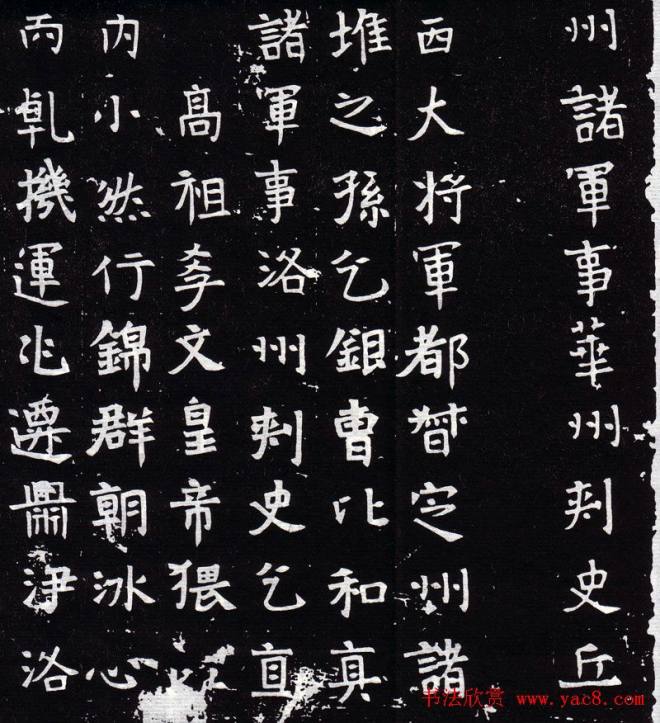 州諸軍事華州刺史丘
西大将軍都督定州諸
堆之孫乞銀曹比和真
諸軍事洛州刺史乞直
高祖孝文皇帝猥
内小然行錦群朝冰心
丙乹機運兆遷鼎伊洛
书法欣赏 www.yac8.com